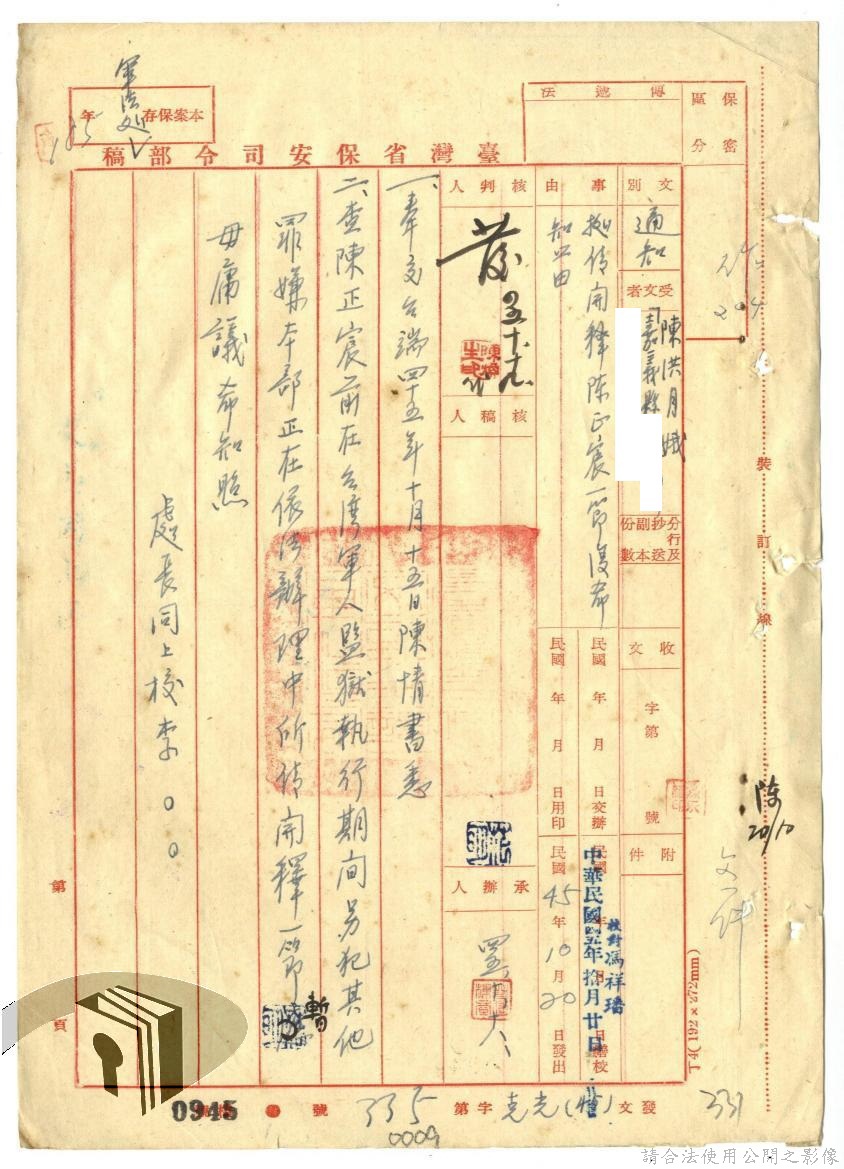 保密
區分
傳遞法
軍法処
本案保存 年
臺灣省保安司令部稿
文別
通知
受文者
陳洪月娥
嘉義縣
分行及抄送副本份數
收文
字第 號
附件
事由
据請開釋陈正宸一節復希
知照由
民國 年 月 日交辦
民國 年 月 日用印
中華民國肆拾五年拾月廿日
校對馮祥璠
日繕校
民國45年10月20日發出
核判人
發
核稿人
承辦人
一、奉交台端四十五年十月十五日陳情書悉
二、查陳正宸前在台灣軍人監獄執行期间另犯其他
罪嫌本部正在依法辦理中所請開釋一節暫
毋庸議希知照
處長同上校李○○
裝訂線
陳
20/10
文一件
T4(192×272mm)
第 頁
發文
字第
335
號
0945
0009
331
請合法使用公開之影像